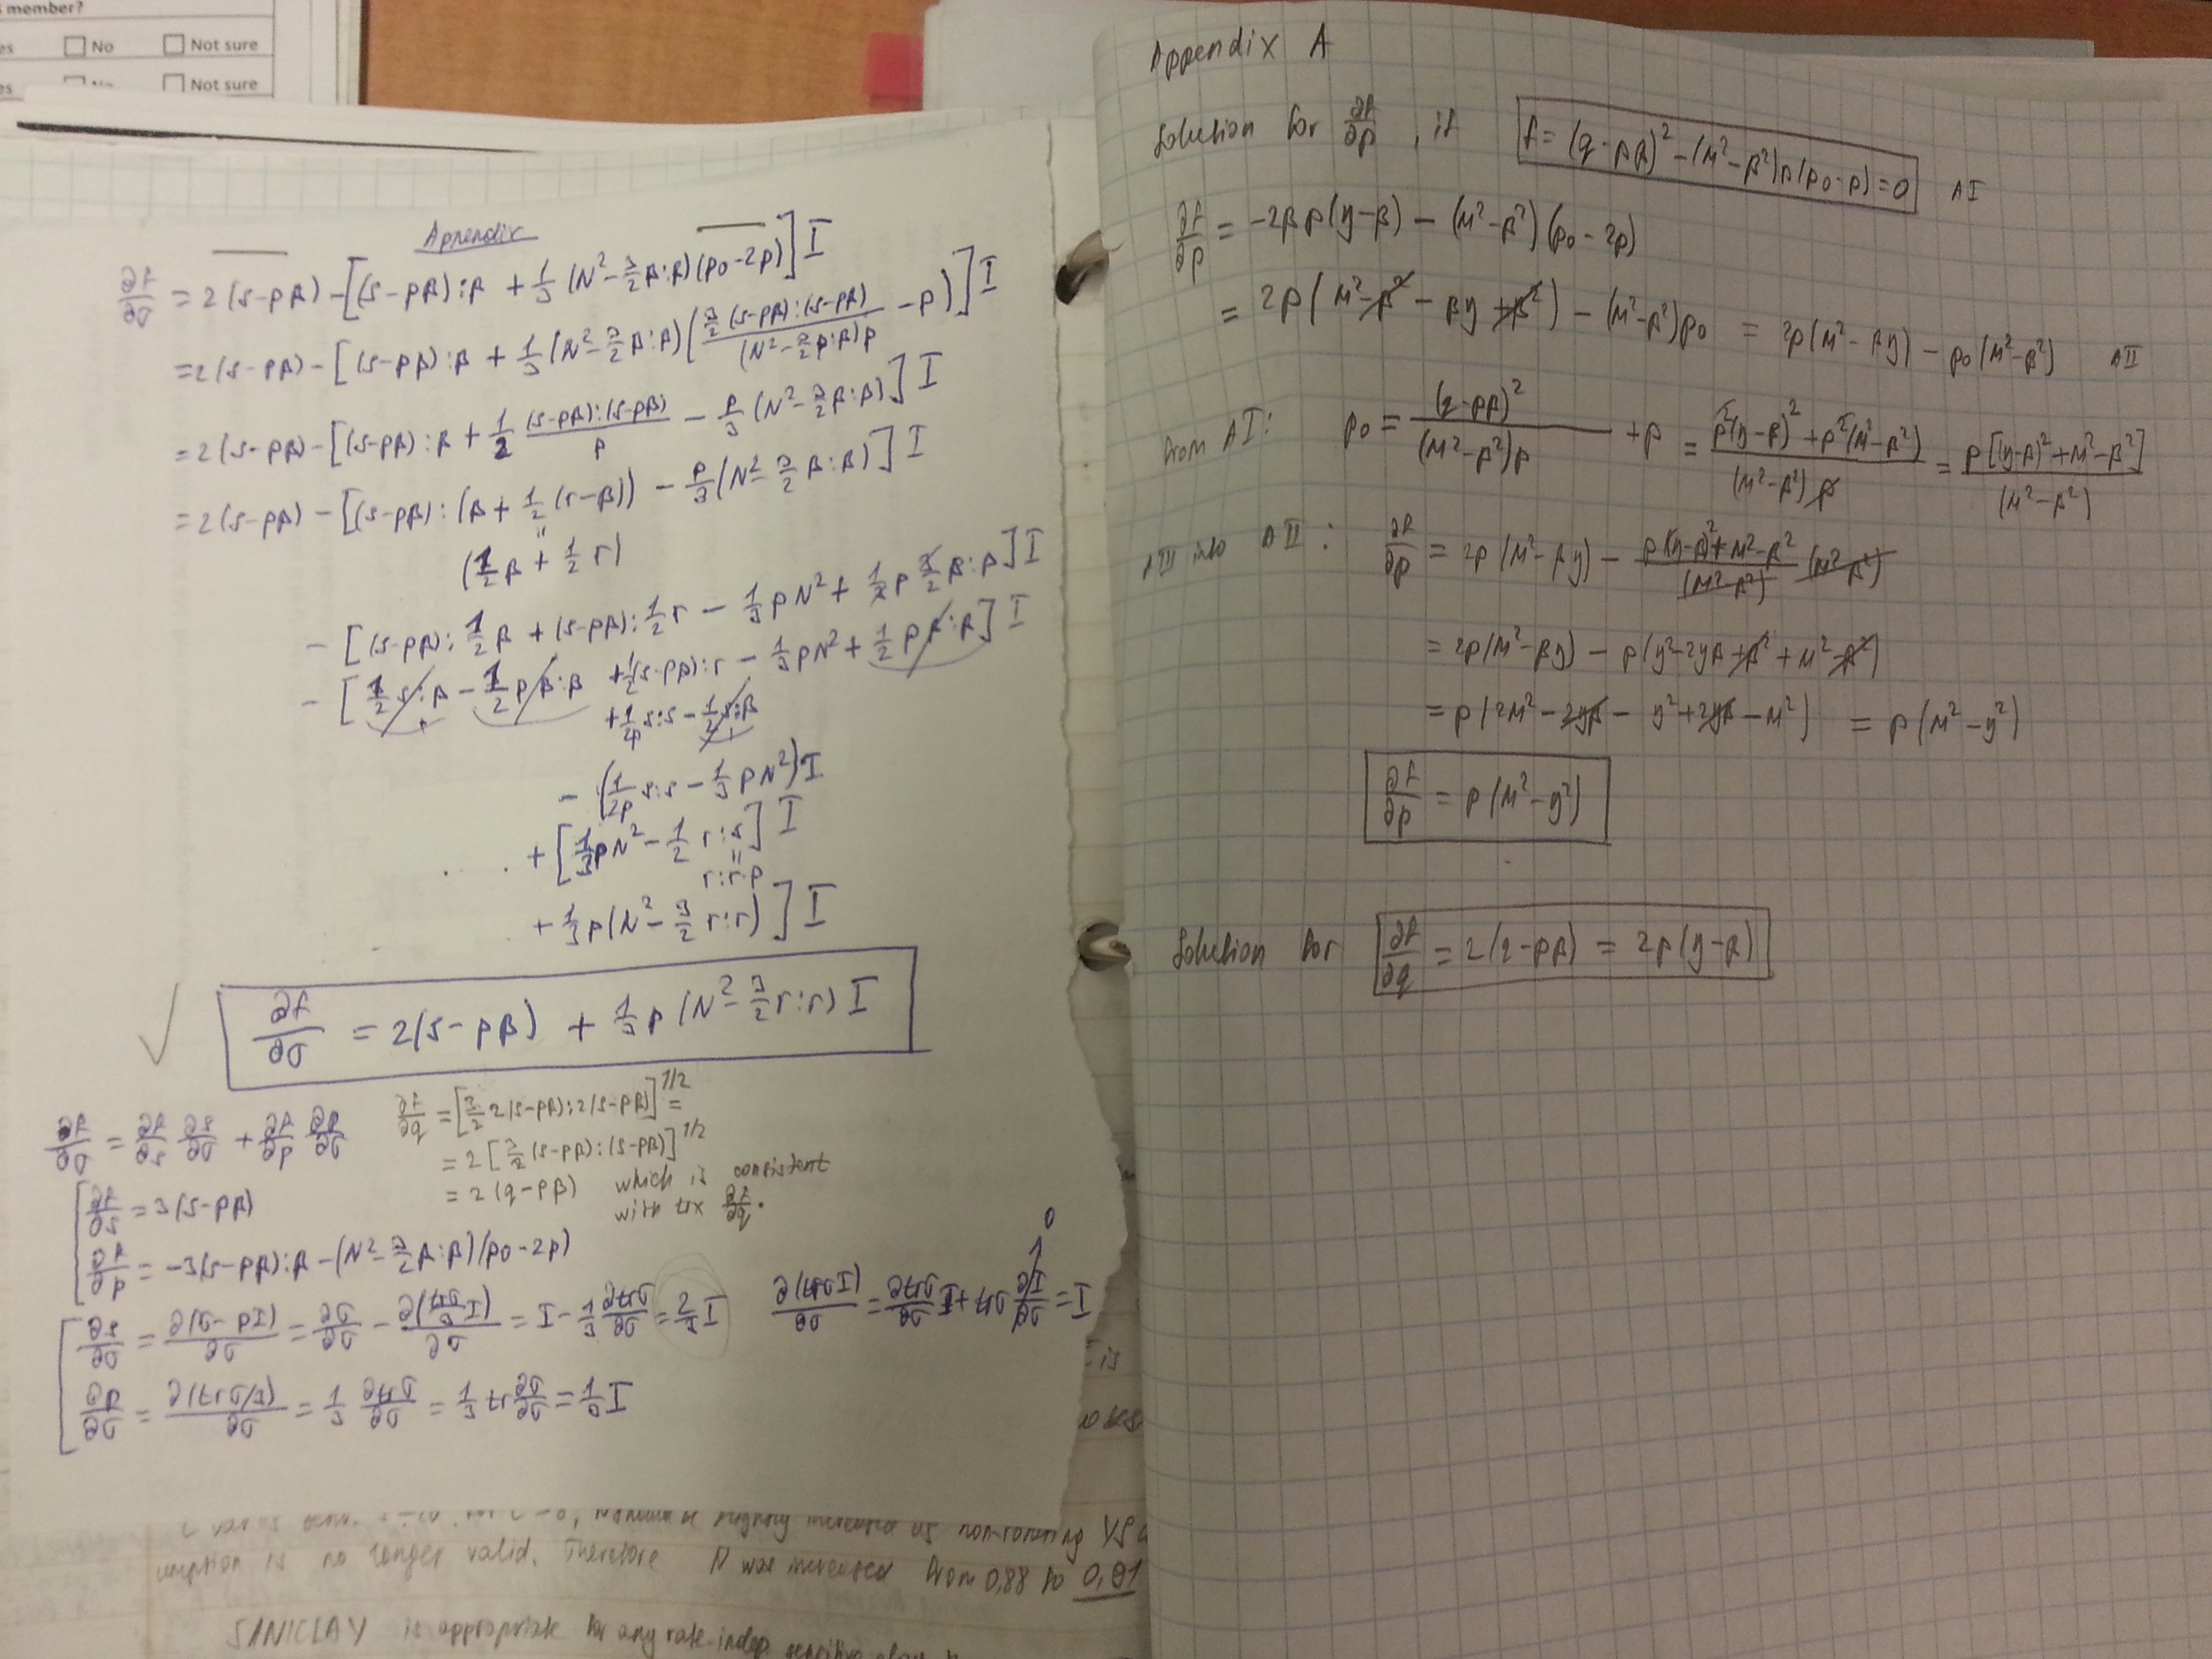 member?
es □ No □ Not sure
es □ No □ Not sure
Appendix
∂f/∂σ = 2(s-pβ) - [(s-pβ):β + 1/3 (N² - 3/2 β:β)(p0-2p)] I
= 2(s-pβ) - [(s-pβ):β + 1/3 (N² - 3/2 β:β)(3/2 (s-pβ):(s-pβ) / (N² - 3/2 β:β)p - p)] I
= 2(s-pβ) - [(s-pβ):β + 1/2 (s-pβ):(s-pβ)/p - p/3 (N² - 3/2 β:β)] I
= 2(s-pβ) - [(s-pβ):(β + 1/2 (r-β)) - p/3 (N² - 3/2 β:β)] I
(1/2 β + 1/2 r)
- [(s-pβ): 1/2 β + (s-pβ): 1/2 r - 1/3 pN² + 1/3 p 3/2 β:β] I
- [1/2 s:β - 1/2 pβ:β + 1/2 (s-pβ):r - 1/3 pN² + 1/2 pβ:β] I
+ 1/2p s:s - 1/2 s:β
- (1/2p s:s - 1/3 pN²) I
.... + [1/3 pN² - 1/2 r:s] I
r:r·p
+ 1/3 p(N² - 3/2 r:r)] I
∂f/∂σ = 2(s-pβ) + 1/3 p (N² - 3/2 r:r) I
∂f/∂σ = ∂f/∂s ∂s/∂σ + ∂f/∂p ∂p/∂σ
∂f/∂q = [3/2 2(s-pβ):2(s-pβ)]^1/2 =
= 2 [3/2 (s-pβ):(s-pβ)]^1/2
= 2 (q-pβ) which is consistent
with trx ∂f/∂q.
∂f/∂s = 3(s-pβ)
∂f/∂p = -3(s-pβ):β - (N² - 3/2 β:β)(p0-2p)
∂s/∂σ = ∂(σ-pI)/∂σ = ∂σ/∂σ - ∂(trσ/3 I)/∂σ = I - 1/3 ∂trσ/∂σ = 2/3 I
∂(trσI)/∂σ = ∂trσ/∂σ I + trσ ∂I/∂σ = I
0
∂p/∂σ = ∂(trσ/3)/∂σ = 1/3 ∂trσ/∂σ = 1/3 tr ∂σ/∂σ = 1/3 I
is
increased as non-rotating YS
umption is no longer valid. Therefore N was increased from 0,88 to 0,91
SANICLAY is appropriate for any rate-indep sensitive clay
Appendix A
Solution for ∂f/∂p, if f = (q-pβ)² - (M²-β²)p(p0-p) = 0 AI
∂f/∂p = -2βp(y-β) - (M²-β²)(p0-2p)
= 2p(M²-β² - βy + β²) - (M²-β²)p0 = 2p(M²-βy) - p0(M²-β²) AII
from AI: p0 = (q-pβ)²/(M²-β²)p + p = p²(y-β)² + p²(M²-β²)/(M²-β²)p = p[(y-β)² + M²-β²]/(M²-β²)
AIII into AII: ∂f/∂p = 2p(M²-βy) - p(y-β)² + M²-β²/(M²-β²) (M²-β²)
= 2p(M²-βy) - p(y²-2yβ+β²+M²-β²)
= p(2M²-2yβ - y²+2yβ-M²) = p(M²-y²)
∂f/∂p = p(M²-y²)
Solution for ∂f/∂q = 2(q-pβ) = 2p(y-β)